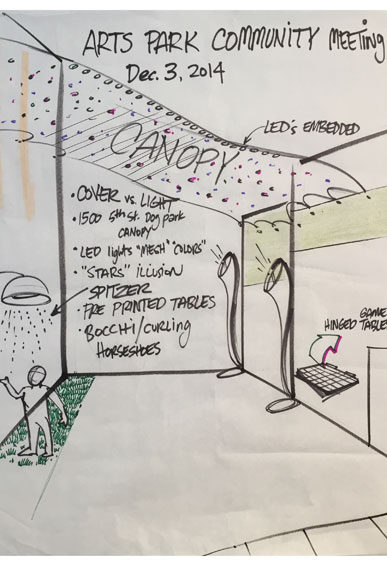 ARTS PARK COMMUNITY MEETING
Dec. 3, 2014
LED's EMBEDDED
CANOPY
• COVER vs. LIGHT
• 1500 5th St. Dog Park
CANOPY
• LED lights "MECH" COLORS"
• "STARS" illusion
SPITZER
• PRE PRINTED TABLES
• BOCCHI/CURLING
HORSESHOES
GAME
HINGED TABLE